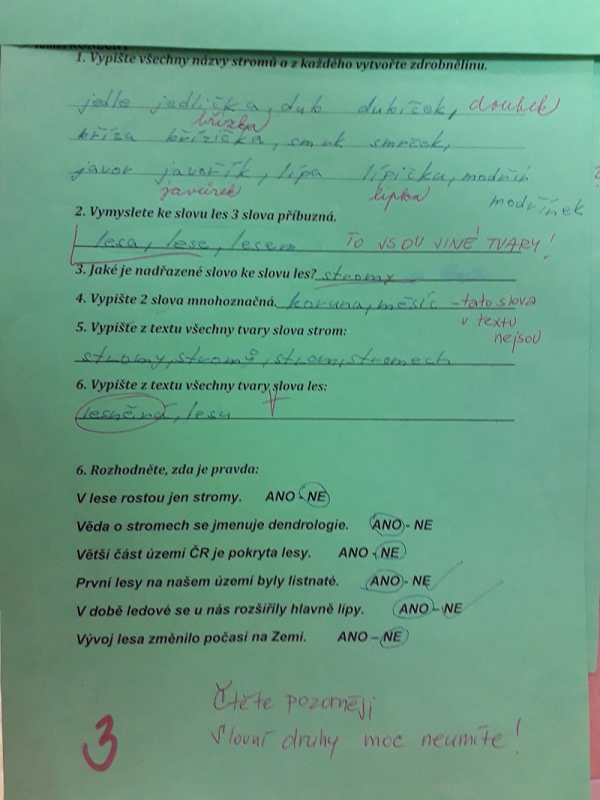 1. Vypište všechny názvy stromů a z každého vytvořte zdrobnělinu.
jedle jedlička, dub dubíček, doubek
břízka
bříza břízička, smrk smrček,
javor javořík, lípa lípička, modřín
javůrek lipka modřínek
2. Vymyslete ke slovu les 3 slova příbuzná.
lesa, lese, lesem TO JSOU JINÉ TVARY!
3. Jaké je nadřazené slovo ke slovu les? stromy
4. Vypište 2 slova mnohoznačná. koruna, měsíc - tato slova
v textu
nejsou
5. Vypište z textu všechny tvary slova strom:
stromy, stromů, strom, stromech
6. Vypište z textu všechny tvary slova les:
lesněná, lesu
6. Rozhodněte, zda je pravda:
V lese rostou jen stromy. ANO - NE
Věda o stromech se jmenuje dendrologie. ANO - NE
Větší část území ČR je pokryta lesy. ANO - NE
První lesy na našem území byly listnaté. ANO - NE
V době ledové se u nás rozšířily hlavně lípy. ANO – NE
Vývoj lesa změnilo počasí na Zemi. ANO – NE
Čtěte pozorněji
3 Slovní druhy moc neumíte!